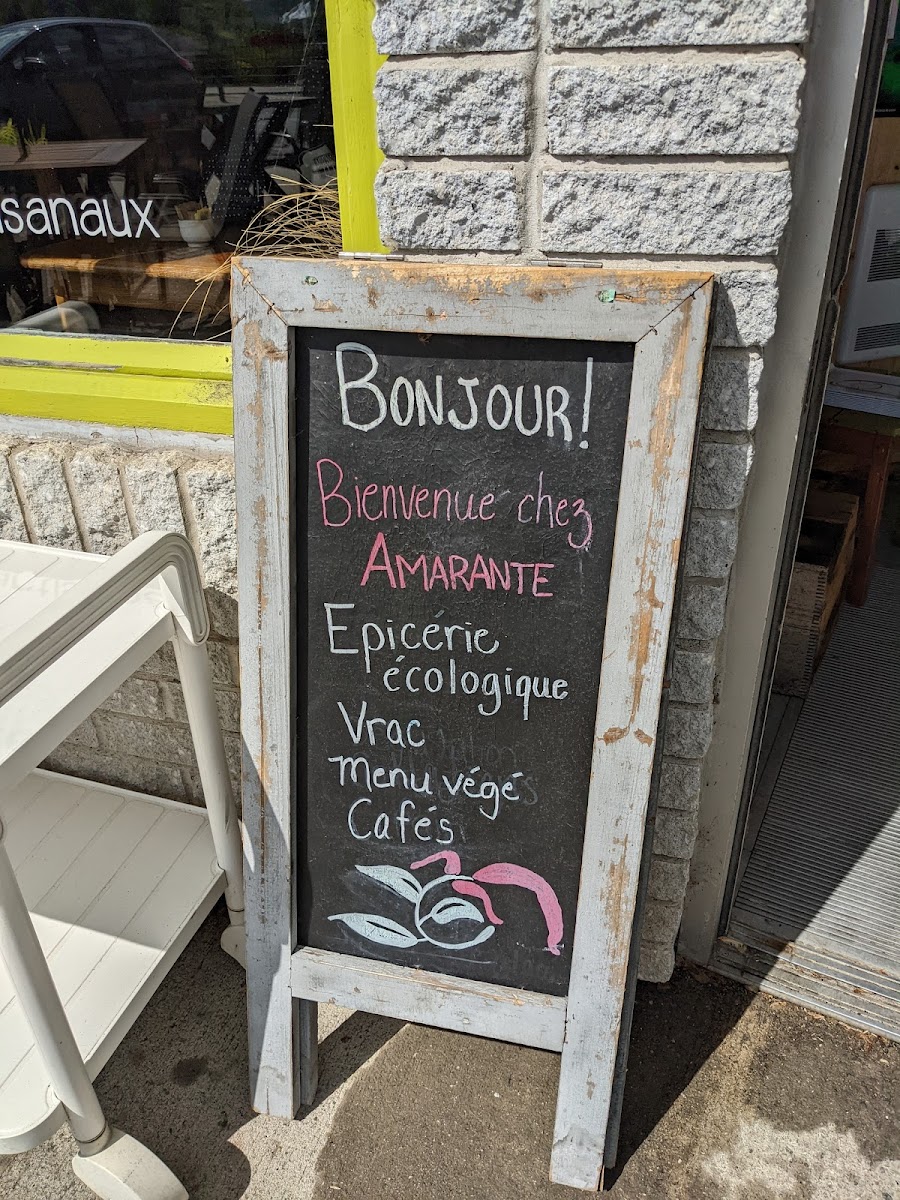 isanaux
BONJOUR!
Bienvenue chez
AMARANTE
Epicérie
écologique
Vrac
Menu végé
Cafés